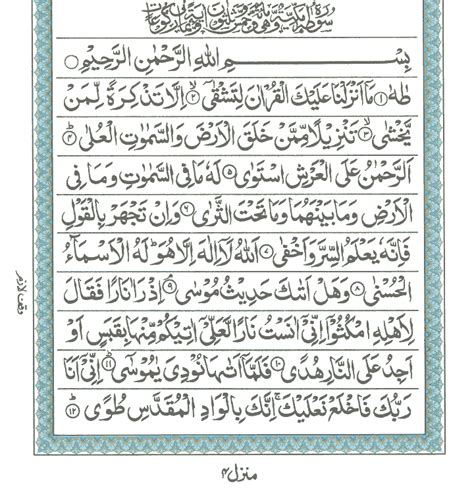 سُوْرَةُ طٰهٰ مَكِّيَّةٌ وَّهِيَ مِائَةٌ وَّخَمْسٌ وَّثَلٰثُوْنَ
بِسْمِ اللّٰهِ الرَّحْمٰنِ الرَّحِيْمِ ○
طٰهٰ ۚ﴿۱﴾ مَاۤ اَنْزَلْنَا عَلَيْكَ الْقُرْاٰنَ لِتَشْقٰۤى ۙ﴿۲﴾ اِلَّا تَذْكِرَةً لِّمَنْ
يَّخْشٰى ۙ﴿۳﴾ تَنْزِيْلًا مِّمَّنْ خَلَقَ الْاَرْضَ وَالسَّمٰوٰتِ الْعُلٰى ؕ﴿۴﴾
اَلرَّحْمٰنُ عَلَى الْعَرْشِ اسْتَوٰى ﴿۵﴾ لَهٗ مَا فِى السَّمٰوٰتِ وَمَا فِى
الْاَرْضِ وَمَا بَيْنَهُمَا وَمَا تَحْتَ الثَّرٰى ﴿۶﴾ وَاِنْ تَجْهَرْ بِالْقَوْلِ
فَاِنَّهٗ يَعْلَمُ السِّرَّ وَاَخْفٰى ﴿۷﴾ اَللّٰهُ لَاۤ اِلٰهَ اِلَّا هُوَ ؕ لَهُ الْاَسْمَآءُ
الْحُسْنٰى ﴿۸﴾ وَهَلْ اَتٰىكَ حَدِيْثُ مُوْسٰى ۘ﴿۹﴾ اِذْ رَاٰ نَارًا فَقَالَ
لِاَهْلِهِ امْكُثُوْۤا اِنِّىْۤ اٰنَسْتُ نَارًا لَّعَلِّىْۤ اٰتِيْكُمْ مِّنْهَا بِقَبَسٍ اَوْ
اَجِدُ عَلَى النَّارِ هُدًى ﴿۱۰﴾ فَلَمَّاۤ اَتٰىهَا نُوْدِىَ يٰمُوْسٰى ؕ﴿۱۱﴾ اِنِّىْۤ اَنَا
رَبُّكَ فَاخْلَعْ نَعْلَيْكَ ۚ اِنَّكَ بِالْوَادِ الْمُقَدَّسِ طُوًى ؕ﴿۱۲﴾
وقف لازم
منزل ۴